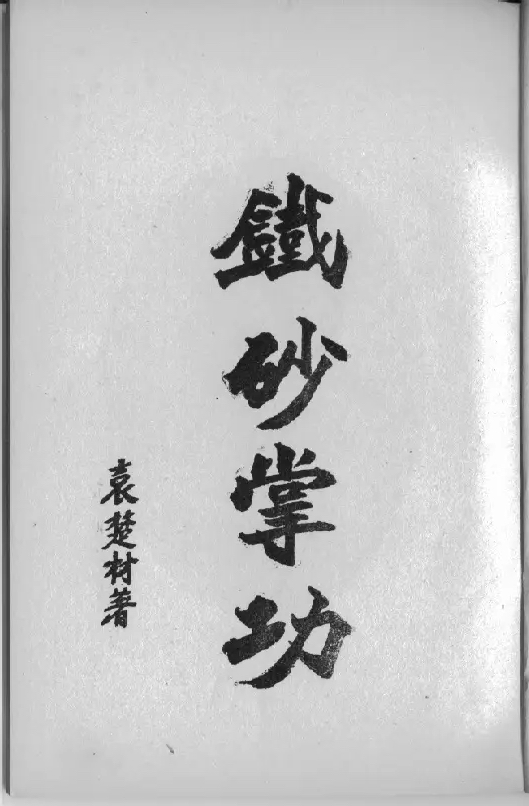 鐵砂掌功
袁楚材著